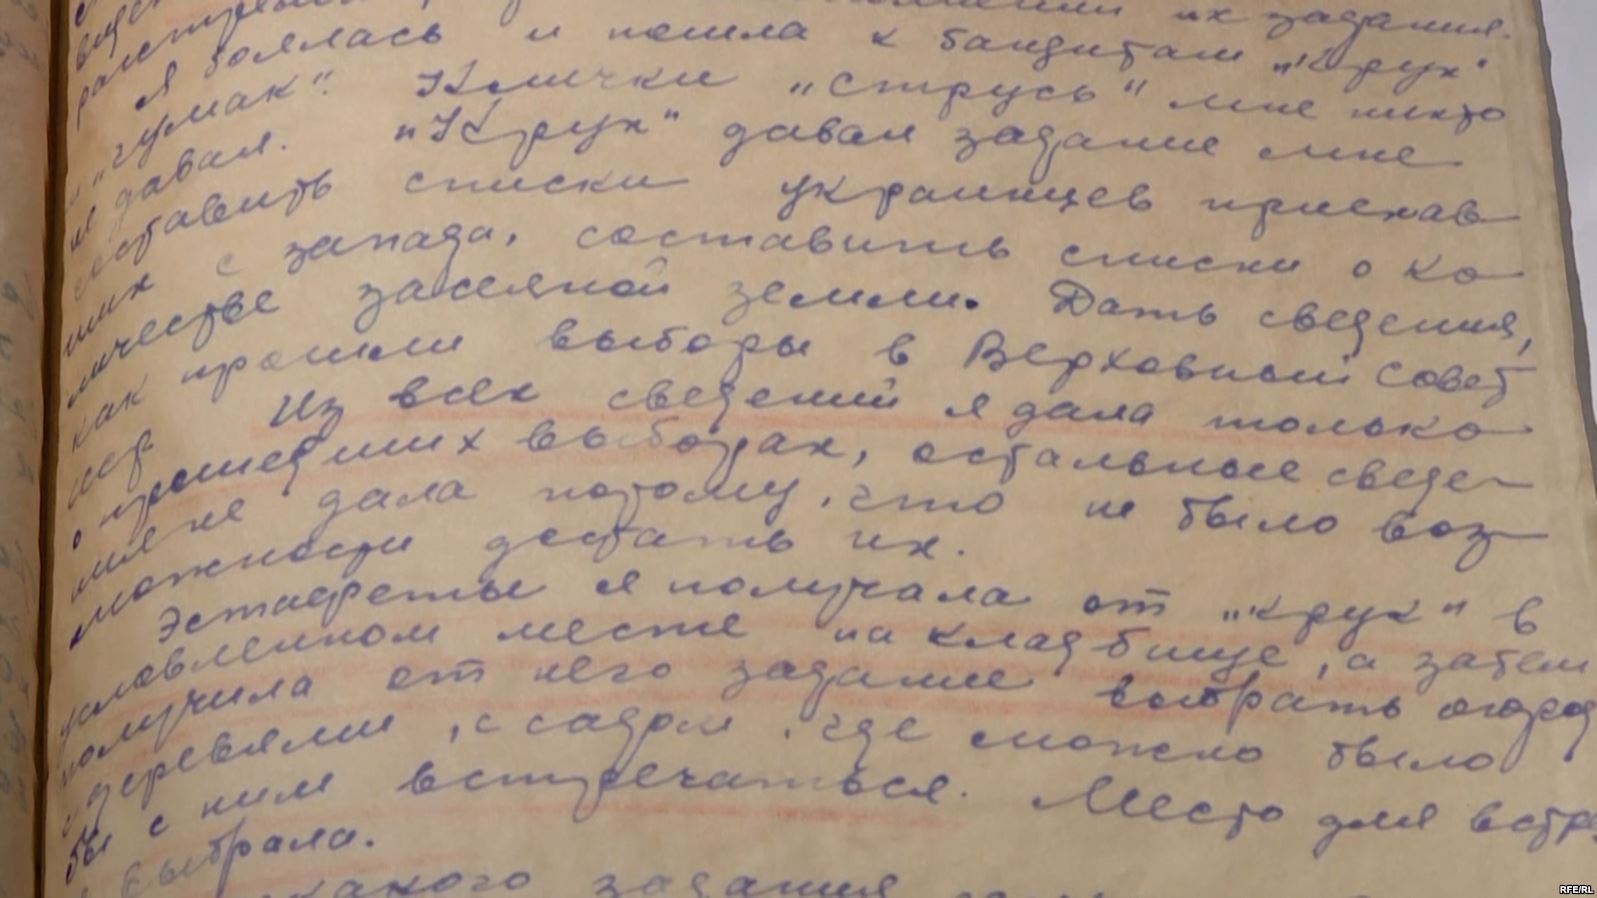 их задания.
Я боялась и пошла к бандитам „Крук"
и „Чумак". Клички „Струсь" мне никто
не давал. „Крук" давал задание мне
составить списки украинцев приехав-
ших с запада, составить списки о ко-
личестве засеяной земли. Дать сведения,
как прошли выборы в Верховный Совет
Из всех сведений я дала только
о прошедших выборах, остальные сведе-
ния не дала потому, что не было воз-
можности достать их.
Эстафеты я получала от „Крук" в
условленном месте на кладбище, а затем
получила от него задание выбрать огород
с деревьями, с садом, где можно было
бы с ним встречаться. Место для встре
я выбрала.
какого задания
RFE/RL